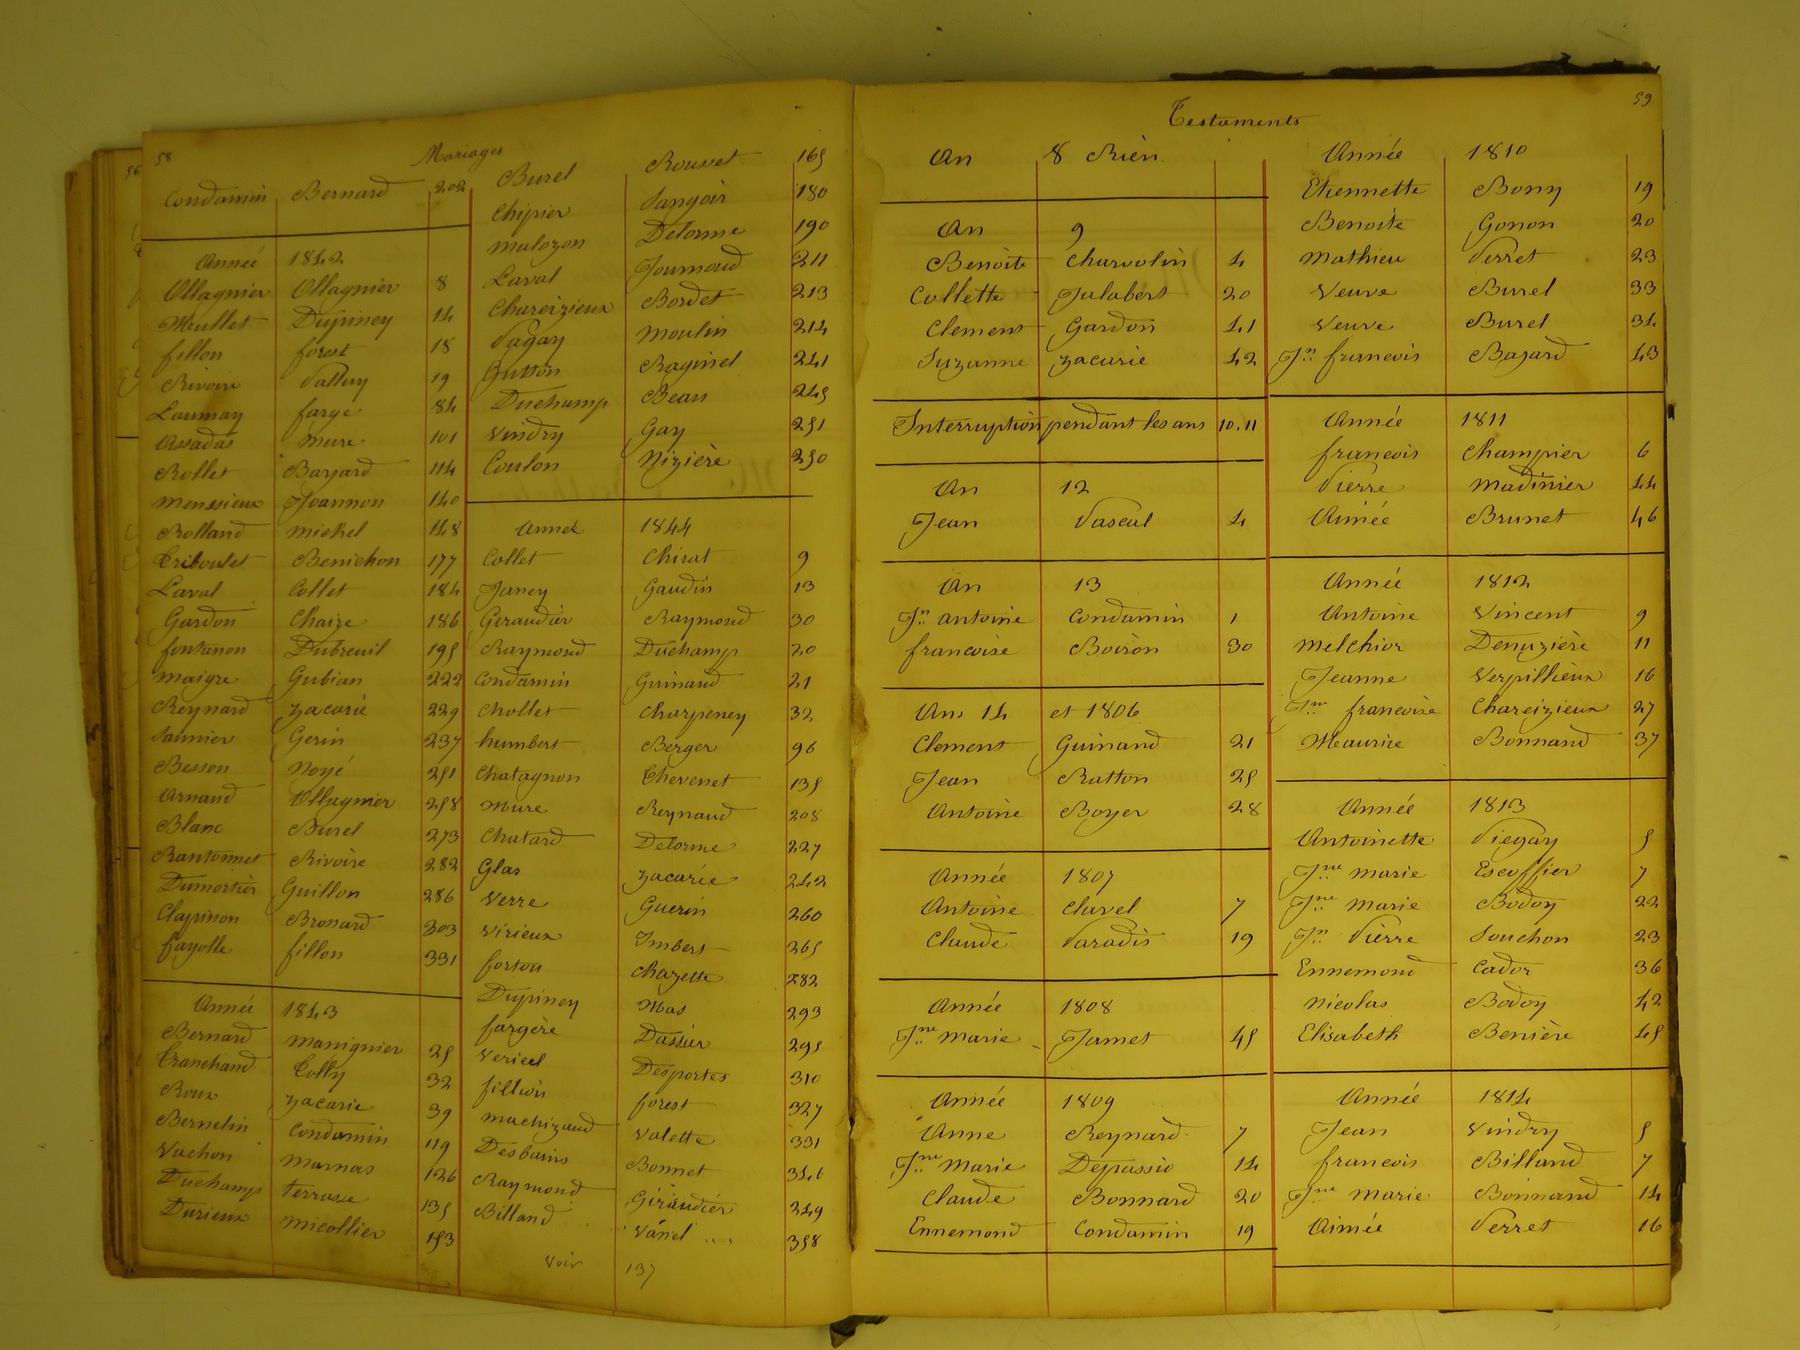 58
Mariages
Condamin Bernard 202
Année 1842
Ollagnier Ollagnier 8
Meullet Dupiney 14
fillon forest 18
Rivoire Palluy 19
Laumay farge 84
Assadas Mure 101
Rollet Bayard 114
Monssieux Joannon 140
Rolland Michel 148
Triboulet Benichon 177
Laval Collet 184
Gardon Chaize 186
fontanon Dubreuil 195
Maigre Gubian 222
Reynard Zacarie 229
Saunier Gerin 237
Besson Noyé 251
Arnaud Ollagnier 258
Blanc Burel 273
Rantonnet Rivoire 282
Dumortier Guillon 286
Clapisson Bronard 303
fayolle fillon 331
Année 1843
Bernard Manignier 25
Tranchand Colly 32
Roux Zacarie 39
Bernelin Condamin 119
Vachon Marnas 126
Duchamp terrasse 135
Durieux Micollier 153
Burel Rousset 165
Chipier Sangoir 180
Malozon Delorme 190
Laval Joumoud 211
Chareizieux Bordet 213
Pagay Moulin 214
Gutton Raginel 241
Duchamp Bean 245
Vindry Gay 251
Coulon Nizière 250
Année 1844
Collet Chirat 9
Janey Gaudin 13
Geraudier Raymond 30
Raymond Duchamp 20
Condamin Guinand 21
Chollet Charpeney 32
humbert Berger 96
Chatagnon Thevenet 135
Mure Reynaud 208
Chatard Delorme 227
Glas Zacarie 242
Verre Guerin 260
Virieux Imbert 265
forton Chazette 282
Dupiney Mas 293
fargère Dassier 295
Vericel Desportes 310
fillion forest 327
Machizaud Valette 331
Desbains Bonnet 346
Raymond Giraudier 349
Billand Vanel 358
Voir 137
59
Testaments
An 8 Rien
An 9
Benoite Charvolin 4
Collette Jalabert 20
Clement Gardon 41
Suzanne Zacarie 42
Interruption pendant les ans 10.11
An 12
Jean Pascal 4
An 13
Jn antoine Condamin 1
francoise Boiron 30
An 14 et 1806
Clement Guinand 21
Jean Ratton 25
Antoine Boyer 28
Année 1807
Antoine Clavel 7
Claude Paradis 19
Année 1808
Jne Marie Jamet 45
Année 1809
Anne Reynard 7
Jne Marie Depassio 14
Claude Bonnard 20
Ennemond Condamin 19
Année 1810
Etiennette Bony 19
Benoite Gonon 20
Mathieu Perret 23
Veuve Burel 33
Veuve Burel 34
Jn francois Bazard 43
Année 1811
francois Champier 6
Pierre Madinier 44
Aimée Brunet 46
Année 1812
Antoine Vincent 9
Melchior Denuzière 11
Jeanne Verpillieux 16
Jne francoise Chareizieux 27
Maurice Bonnand 37
Année 1813
Antoinette Piegay 5
Jne marie Escoffier 7
Jne Marie Bodoy 22
Jn Pierre Souchon 23
Ennemond Cador 36
Nicolas Bodoy 42
Elisabeth Benière 45
Année 1814
Jean Vindry 5
francois Billand 7
Jne Marie Bonnand 14
Aimée Perret 16